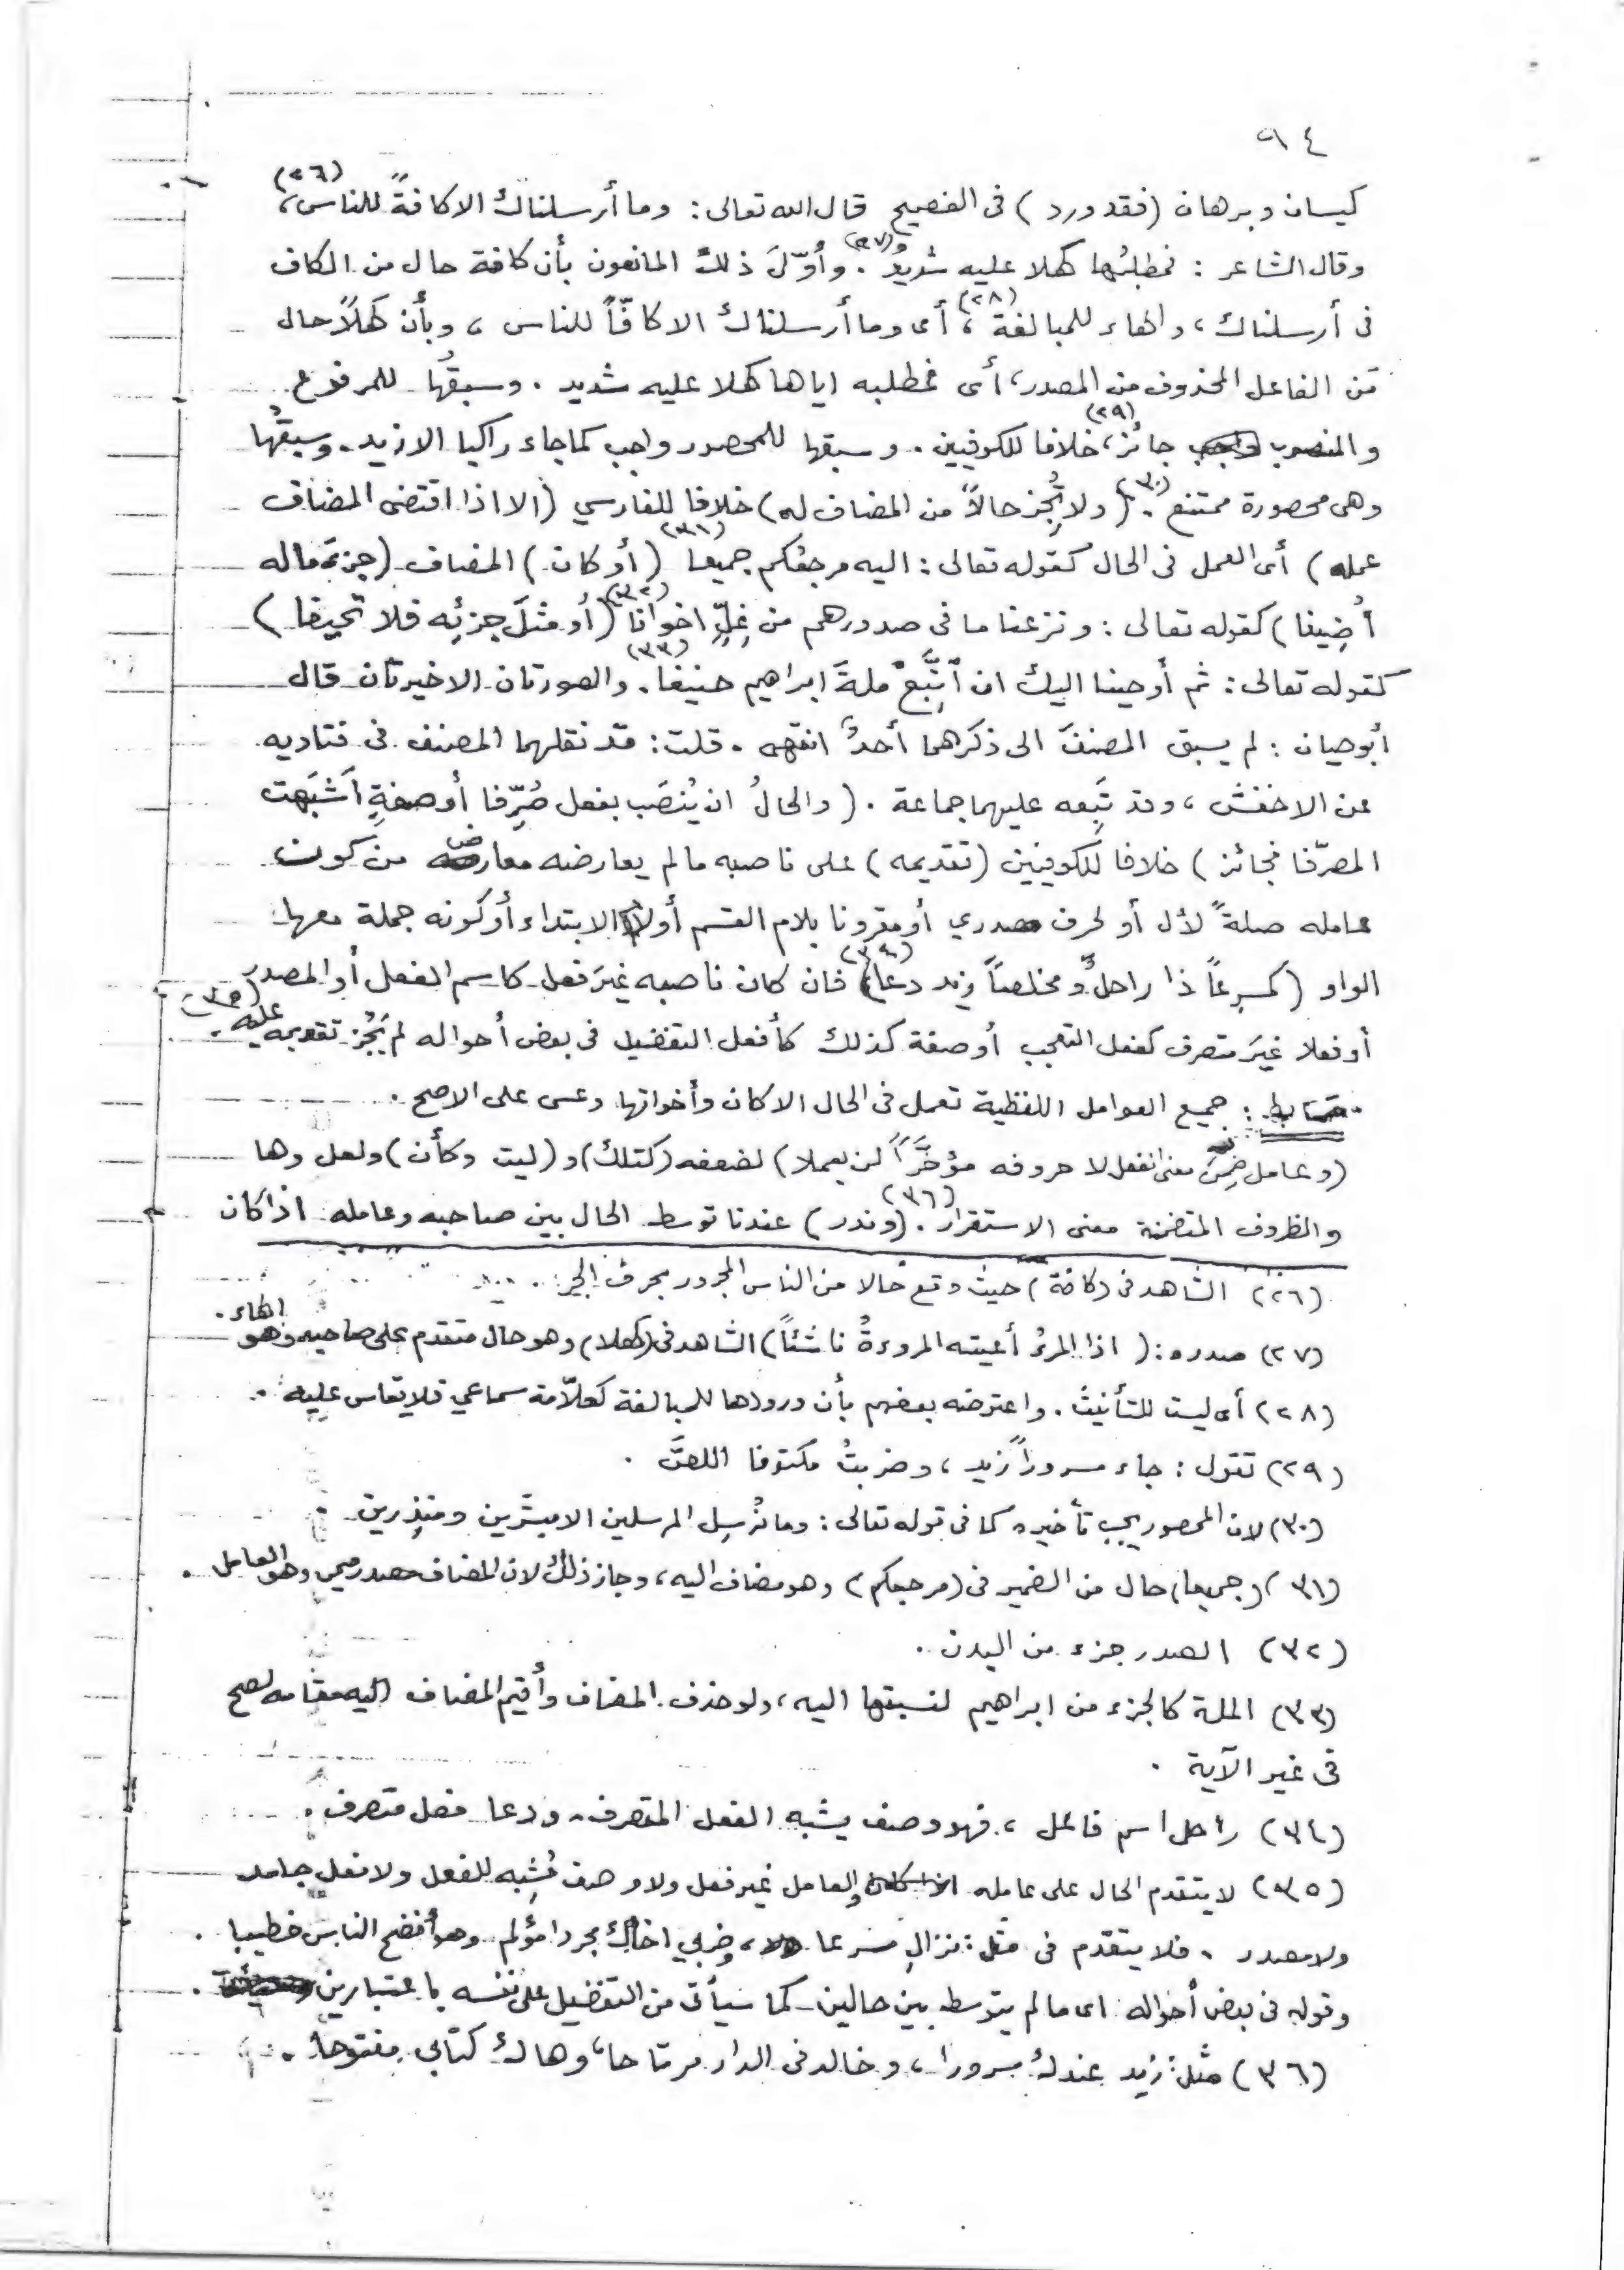 ٩٤
كيسان وبرهان (فقد ورد) فى الفصيح قال الله تعالى: وما أرسلناك الا كافةً للناس، (٢٦)
وقال الشاعر : فمطلبُها كهلا عليه شديدُ (٢٧). وأوّلَ ذلك المانعون بأن كافة حال من الكاف
فى أرسلناك، والهاء للمبالغة (٢٨)، أى وما أرسلناك الا كافّاً للناس، وبأن كهلاً حال
مَن الفاعل المحذوف من المصدر، أى فمطلبه اياها كهلا عليه شديد. وسبقُها للمرفوع
والمنصوب جائز، (٢٩) خلافا للكوفيين. وسبقها للمحصور واجب كما جاء راكبا الا زيد. وسبقُها
وهى محصورة ممتنع (٣٠). (ولا تُجِز حالاً من المضاف له) خلافا للفارسي (الا اذا اقتضى المضاف
عمله) أى العمل فى الحال كقوله تعالى: اليه مرجعكم جميعا (٣١) (أو كان) المضاف (جزءَ ماله
أُضِيفا) كقوله تعالى: ونزعنا ما فى صدورهم من غِلٍّ اخوانا (٣٢) (أو مثلَ جزئِه فلا تحيفا)
كقوله تعالى: ثم أوحينا اليك ان اتَّبِعْ ملةَ ابراهيم حنيفا (٣٣). والصورتان الاخيرتان قال
أبو حيان : لم يسبق المصنفَ الى ذكرهما أحدٌ انتهى. قلت: قد نقلهما المصنف فى فتاديه
عن الاخفش، وقد تَبِعه عليهما جماعة. (والحالُ ان يُنصَب بفعل صُرِّفا أو صفةٍ أشبَهت
المصرّفا فجائز) خلافا للكوفيين (تقديمه) على ناصبه ما لم يعارضه معارض من كون
عامله صلةً لأل أو لحرف مصدري أو مقرونا بلام القسم أو لام الابتداء أو كونه جملة معها
الواو (كمسرعاً ذا راحلٌ ومخلصاً زيد دعا) (٣٤) فان كان ناصبه غيَر فعل كاسم الفعل أو المصدر
أو فعلا غيَر متصرف كفعل التعجب أو صفة كذلك كأفعل التفضيل فى بعض أحواله لم يَجُز تقديمه عليه (٣٥).
ضابط: جميع العوامل اللفظية تعمل فى الحال الا كان وأخواتها وعسى على الاصح.
(وعامل ضُمِّنَ معنى الفعل لا حروفه مؤخَّراً لن يعملا) لضعفه (كتلك) و (ليت وكأن) ولعل وها
والظروف المتضمنة معنى الاستقرار (٣٦). (وندر) عندنا توسط الحال بين صاحبه وعامله اذا كان
(٢٦) الشاهد فى (كافة) حيث وقع حالا من الناس المجرور بحرف الجر.
(٢٧) صدره: (اذا المرءُ أعيته المروءةُ ناشئاً) الشاهد فى (كهلا) وهو حال متقدم على صاحبه وهو الهاء.
(٢٨) أى ليست للتأنيث. واعترضه بعضهم بأن ورودها للمبالغة كعلاّمة سماعي فلا يقاس عليه.
(٢٩) تقول: جاء مسروراً زيد، وضربتُ مكتوفا اللصَّ.
(٣٠) لان المحصور يجب تأخيره كما فى قوله تعالى: وما نُرسِل المرسلين الا مبشّرين ومنذِرين
(٣١) (جميعا) حال من الضمير فى (مرجعكم) وهو مضاف اليه، وجاز ذلك لان المضاف مصدر ميمي وهو العامل.
(٣٢) الصدر جزء من البدن.
(٣٣) الملة كالجزء من ابراهيم لنسبتها اليه، ولو حذف المضاف وأُقيم المضاف اليه مقامه لصح
فى غير الآية.
(٣٤) راحل اسم فاعل، فهو وصف يشبه الفعل المتصرف. ودعا فعل متصرف.
(٣٥) لا يتقدم الحال على عامله والعامل غير فعل ولا وصف مُشبِه للفعل ولا فعل جامد
ولا مصدر. فلا يتقدم فى مثل: نزالِ مسرعا، وضربي اخاك مجردا مؤلم. وهو أفضح الناس خطيبا.
وقوله فى بعض أحواله اى ما لم يتوسط بين حالين كما سيأتى من التفضيل على نفسه باعتبارين.
(٣٦) مثل: زيد عندك مسرورا، وخالد فى الدار مرتاحا، وهاك كتابى مفتوحا.